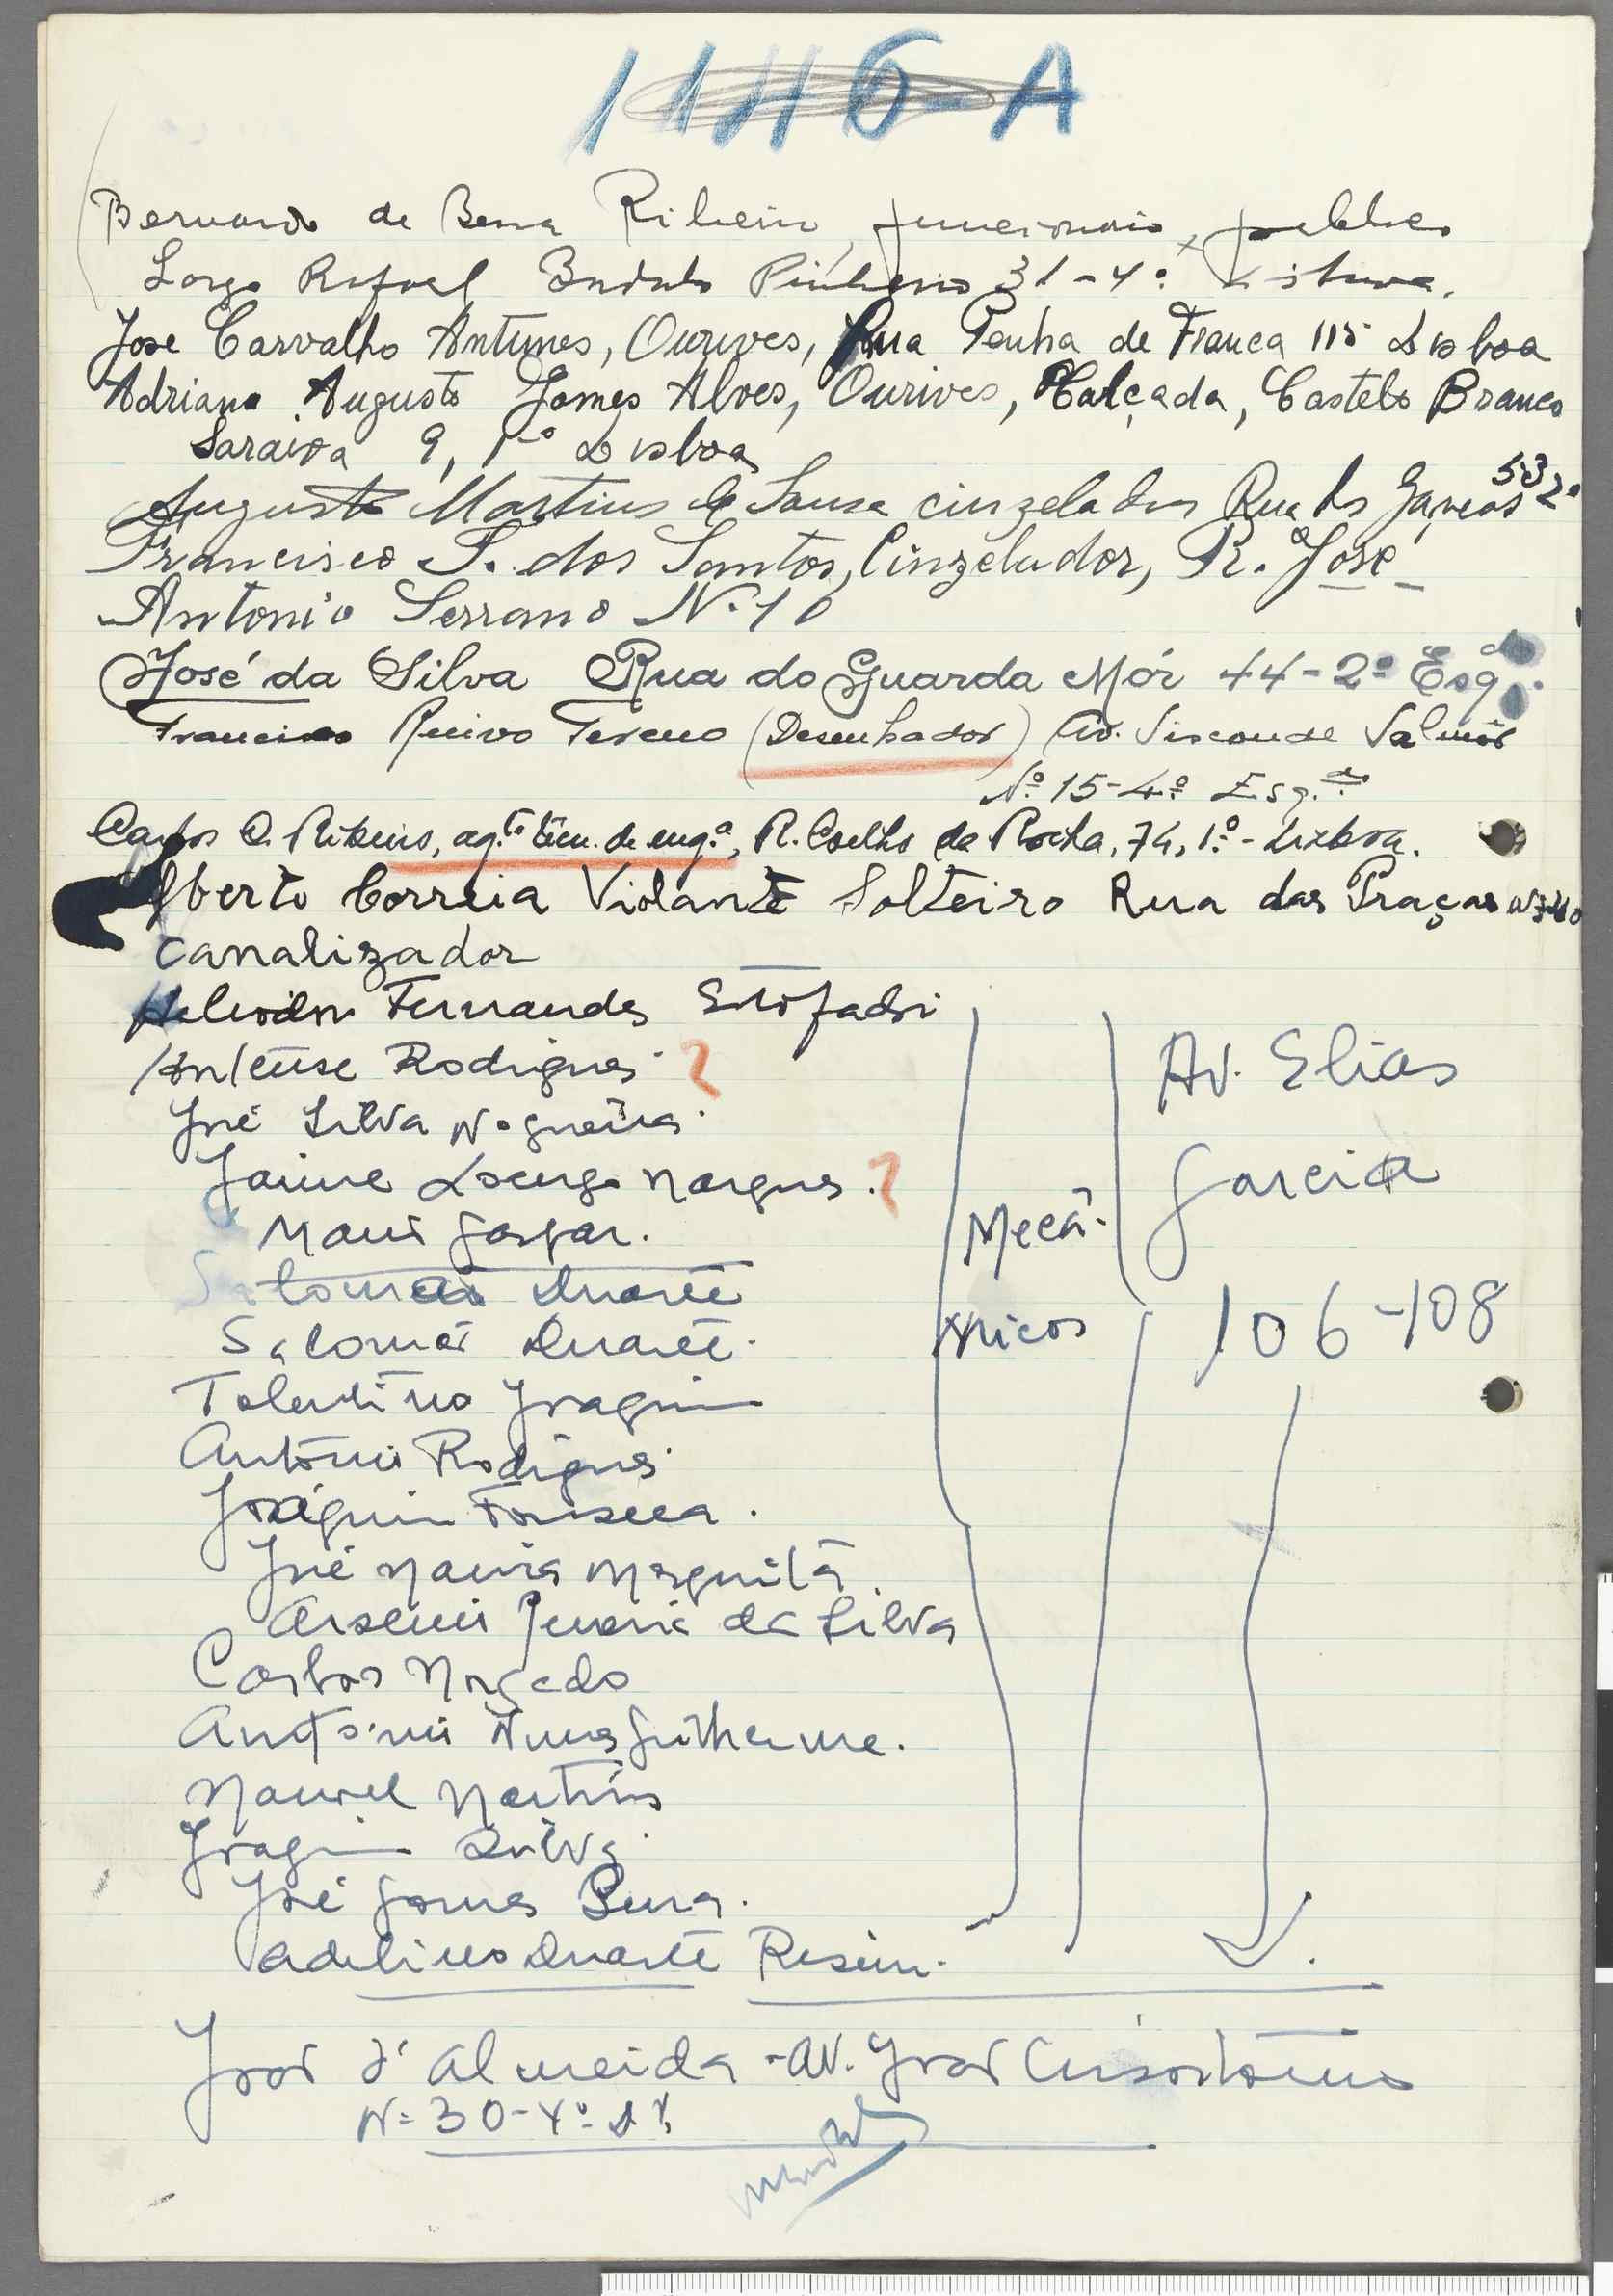 1116-A
Bernardo de Sena Ribeiro, funcionario publico
Largo Rafael Bordalo Pinheiro 31-4º Lisboa.
Jose Carvalho Antunes, Ourives, Rua Penha de Franca 115 Lisboa
Adriano Augusto Gomes Alves, Ourives, Calçada, Castelo Branco
Saraiva 9, 1º Lisboa
Augusto Martins de Sousa cinzelador Rua das Gaveas 53 2º
Francisco S. dos Santos, Cinzelador, R. José
Antonio Serrano N. 10
José da Silva Rua do Guarda Mór 44-2º Esqdo.
Francisco Ruivo Tereno (Desenhador) Av. Visconde Valmôr
Nº 15-4º Esq.do
Carlos A. Ribeiro, ag.te técn. de eng.a, R. Coelho da Rocha, 74, 1.º - Lisboa.
Alberto Correia Violante Solteiro Rua das Praças
Canalizador
Fernandes Estofador
Rodrigues ?
José Silva Nogueira.
Jaime Lourenço Marques. ?
Mario Gaspar.
Salomão Duarte
Salomão Duarte.
Tolentino Joaquim
António Rodrigues
Joaquim Fonseca.
José Maria Mesquita.
Arsenio Pereira da Silva
Carlos Macedo
António Nunes Guilherme.
Manuel Martins
Joaquim Silva.
José Gomes Pena.
Adelino Duarte
Mecâ-
nicos
Av. Elias
Garcia
106-108
João d'Almeida - Av. João Crisostomo
Nº 30-4º Dt.